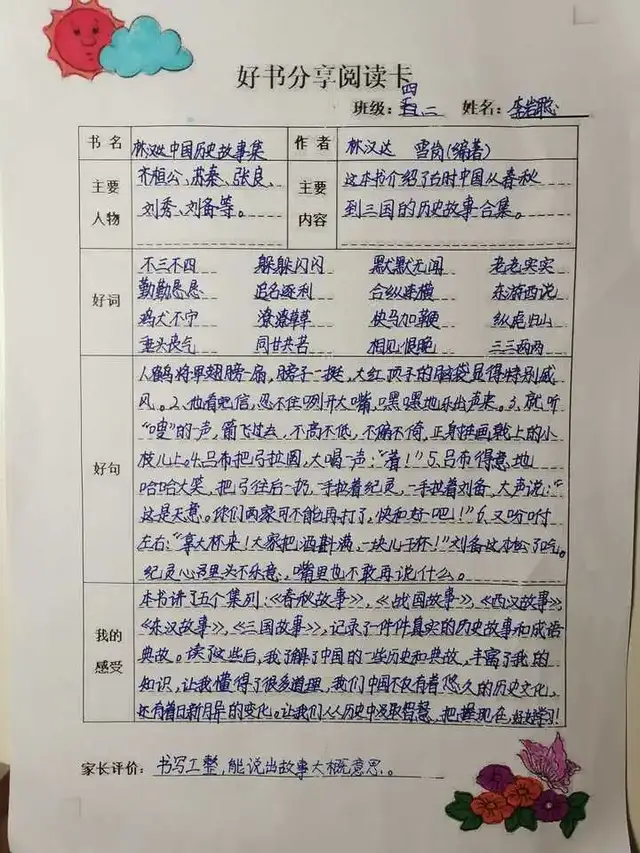 好书分享阅读卡
班级：四二 姓名：李岩聪
书名 林汉达中国历史故事集 作者 林汉达 雪岗(编著)
主要人物 齐桓公、苏秦、张良、
刘秀、刘备等。
主要内容 这本书介绍了古时中国从春秋
到三国的历史故事合集。
好词
不三不四 躲躲闪闪 默默无闻 老老实实
勤勤恳恳 追名逐利 合纵连横 东游西说
鸡犬不宁 潦潦草草 快马加鞭 纵虎归山
垂头丧气 同甘共苦 相见恨晚 三三两两
好句
1、鹤将军翅膀一扇，膀子一挺，大红顶子的脑袋显得特别威
风。2、他看吧信，忍不住咧开大嘴，嘿嘿地乐出声来。3、就听
“嗖”的一声，箭飞过去，不高不低，不偏不倚，正射在画戟上的小
枝儿上。4、吕布把弓拉圆，大喝一声：“着！”5、吕布得意地
哈哈大笑，把弓往后一扔，一手拉着纪灵，一手拉着刘备，大声说：“
这是天意。你们两家可不能再打了，快和好吧！”6、又吩咐
左右：“拿大杯来！大家把酒斟满，一块儿干杯！”刘备这才松了口气。
纪灵心里头不乐意，嘴里也不敢再说什么。
我的感受
本书讲了五个集列：《春秋故事》，《战国故事》，《西汉故事》，
《东汉故事》，《三国故事》，记录了一件件真实的历史故事和成语
典故。读了这些后，我了解了中国的一些历史和典故，丰富了我的
知识，让我懂得了很多道理，我们中国不仅有着悠久的历史文化，
还有着日新月异的变化。让我们从历史中汲取智慧，把握现在，好好学习！
家长评价：书写工整，能说出故事大概意思。